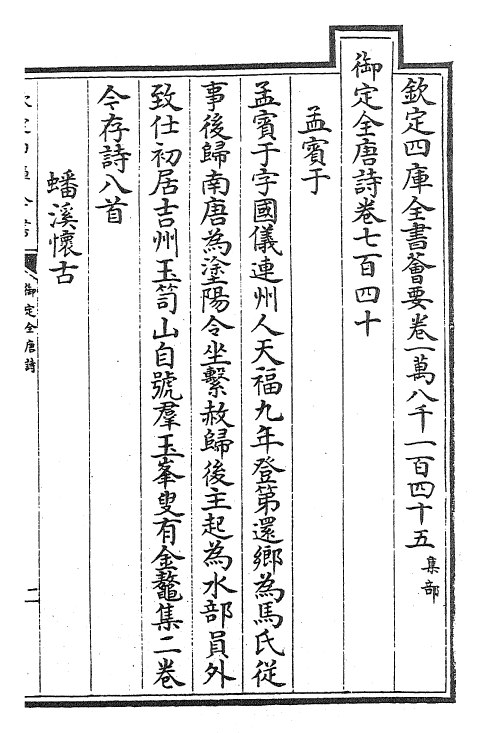 欽定四庫全書薈要卷一萬八千一百四十五 集部
御定全唐詩卷七百四十
孟賓于
孟賓于字國儀連州人天福九年登第還鄉為馬氏從
事後歸南唐為塗陽令坐繫赦歸後主起為水部員外
致仕初居吉州玉笥山自號羣玉峯叟有金鼇集二卷
今存詩八首
蟠溪懷古
御定全唐詩